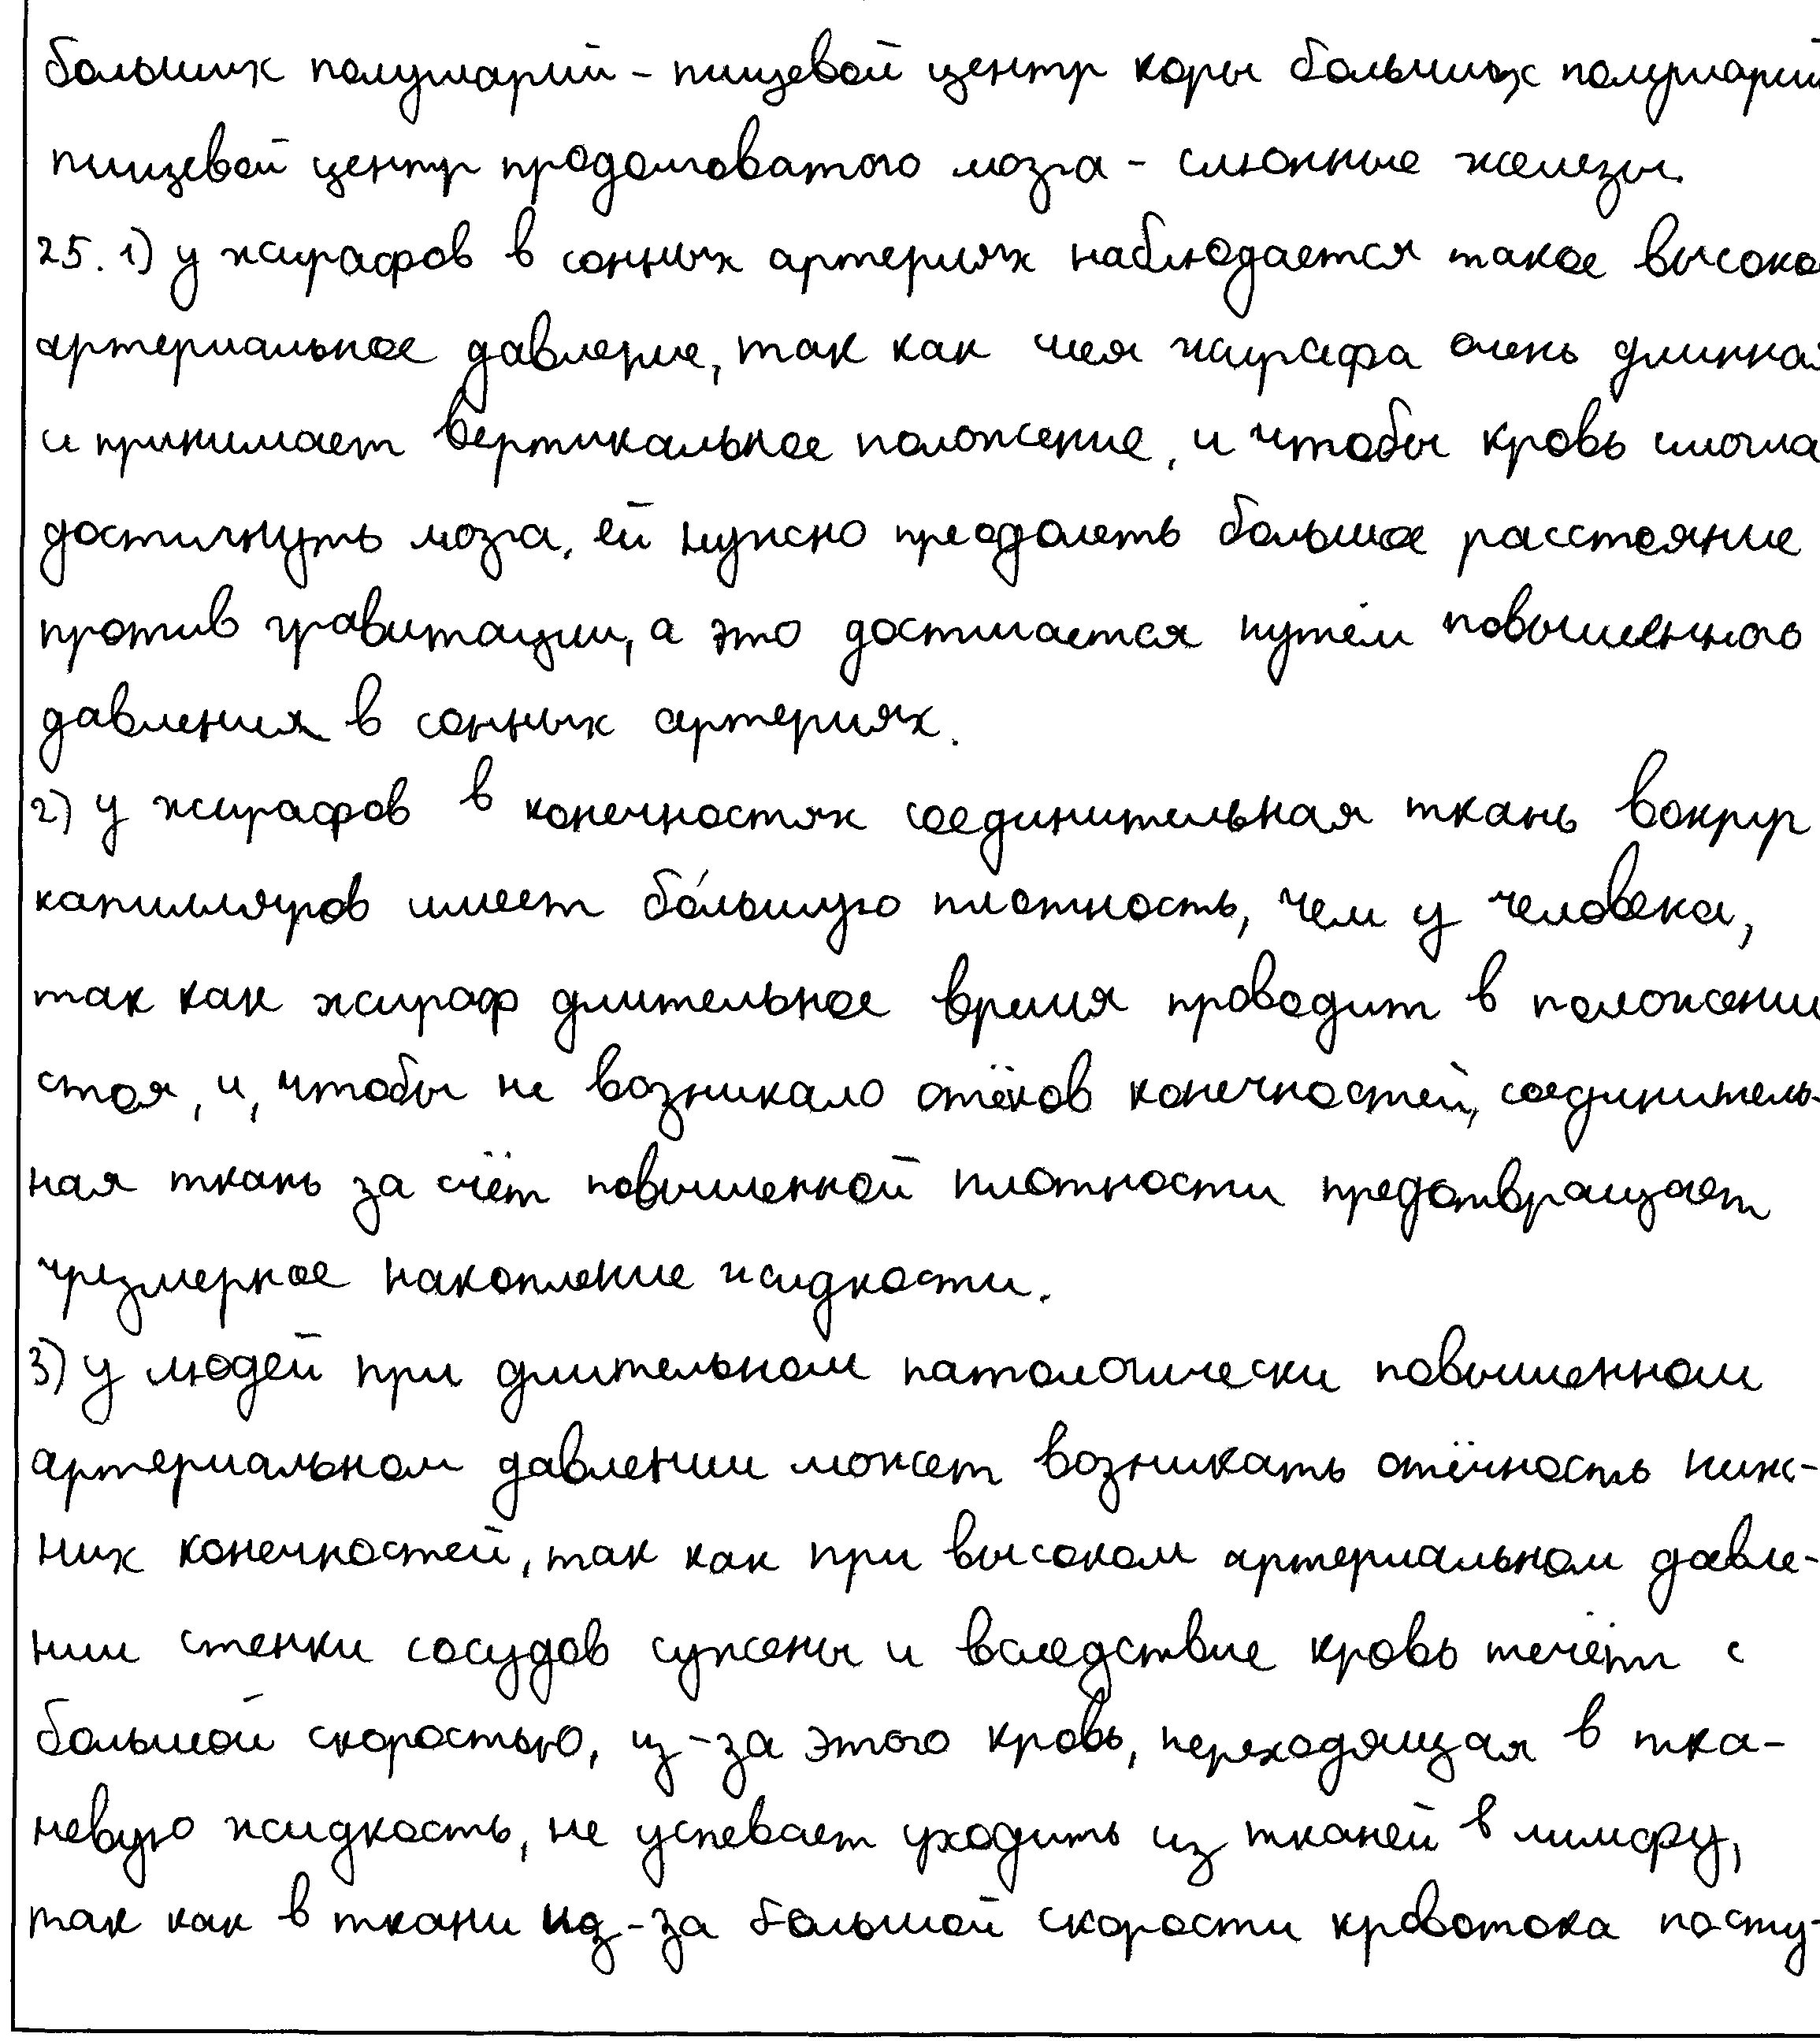 больших полушарий - пищевой центр коры больших полушарий
пищевой центр продолговатого мозга - слюнные железы.
25. 1) у жирафов в сонных артериях наблюдается такое высоко
артериальное давление, так как шея жирафа очень длинная
и принимает вертикальное положение, и чтобы кровь смогла
достигнуть мозга, ей нужно преодолеть большое расстояние
против гравитации, а это достигается путём повышенного
давления в сонных артериях.
2) у жирафов в конечностях соединительная ткань вокруг
капилляров имеет бо́льшую плотность, чем у человека,
так как жираф длительное время проводит в положени
стоя, и, чтобы не возникало отёков конечностей, соединитель-
ная ткань за счёт повышенной плотности предотвращает
чрезмерное накопление жидкости.
3) у людей при длительном патологически повышенном
артериальном давлении может возникать отёчность ниж-
них конечностей, так как при высоком артериальном давле-
нии стенки сосудов сужены и вследствие кровь течёт с
большой скоростью, из-за этого кровь, переходящая в тка-
невую жидкость, не успевает уходить из тканей в лимфу,
так как в ткани из-за большой скорости кровотока посту-